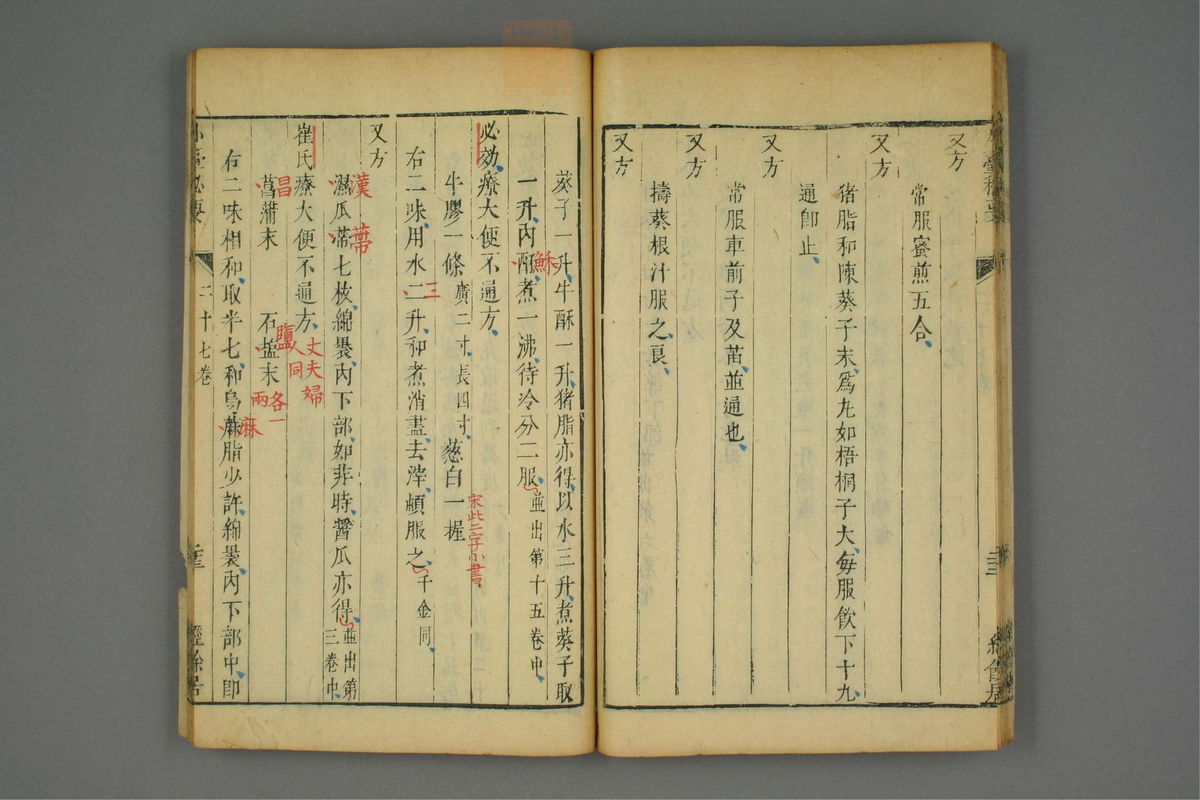 又方
常服蜜煎五合
又方
猪脂和陳葵子末為丸如梧桐子大每服飲下十九
通卽止
又方
常服車前子及苗並通也
又方
擣葵根汁服之良
又方
葵子一升牛酥一升猪脂亦得以水三升煮葵子取
一升內酥煮一沸待冷分二服並出第十五卷中
穌
必効療大便不通方
牛膠一條廣二寸長四寸葱白一握
宋此二字小書
右二味用水二升和煮消盡去滓頓服之千金同
三
又方
濕瓜蒂七枚綿裹內下部如非時醬瓜亦得並出第
三卷中
漢蒂
崔氏療大便不通方
丈夫婦
人同
菖蒲末 石盐末
昌
鹽
各一
兩
右二味相和取半七和烏麻脂少許綿裹內下部中卽
麻
二十七卷
經餘居